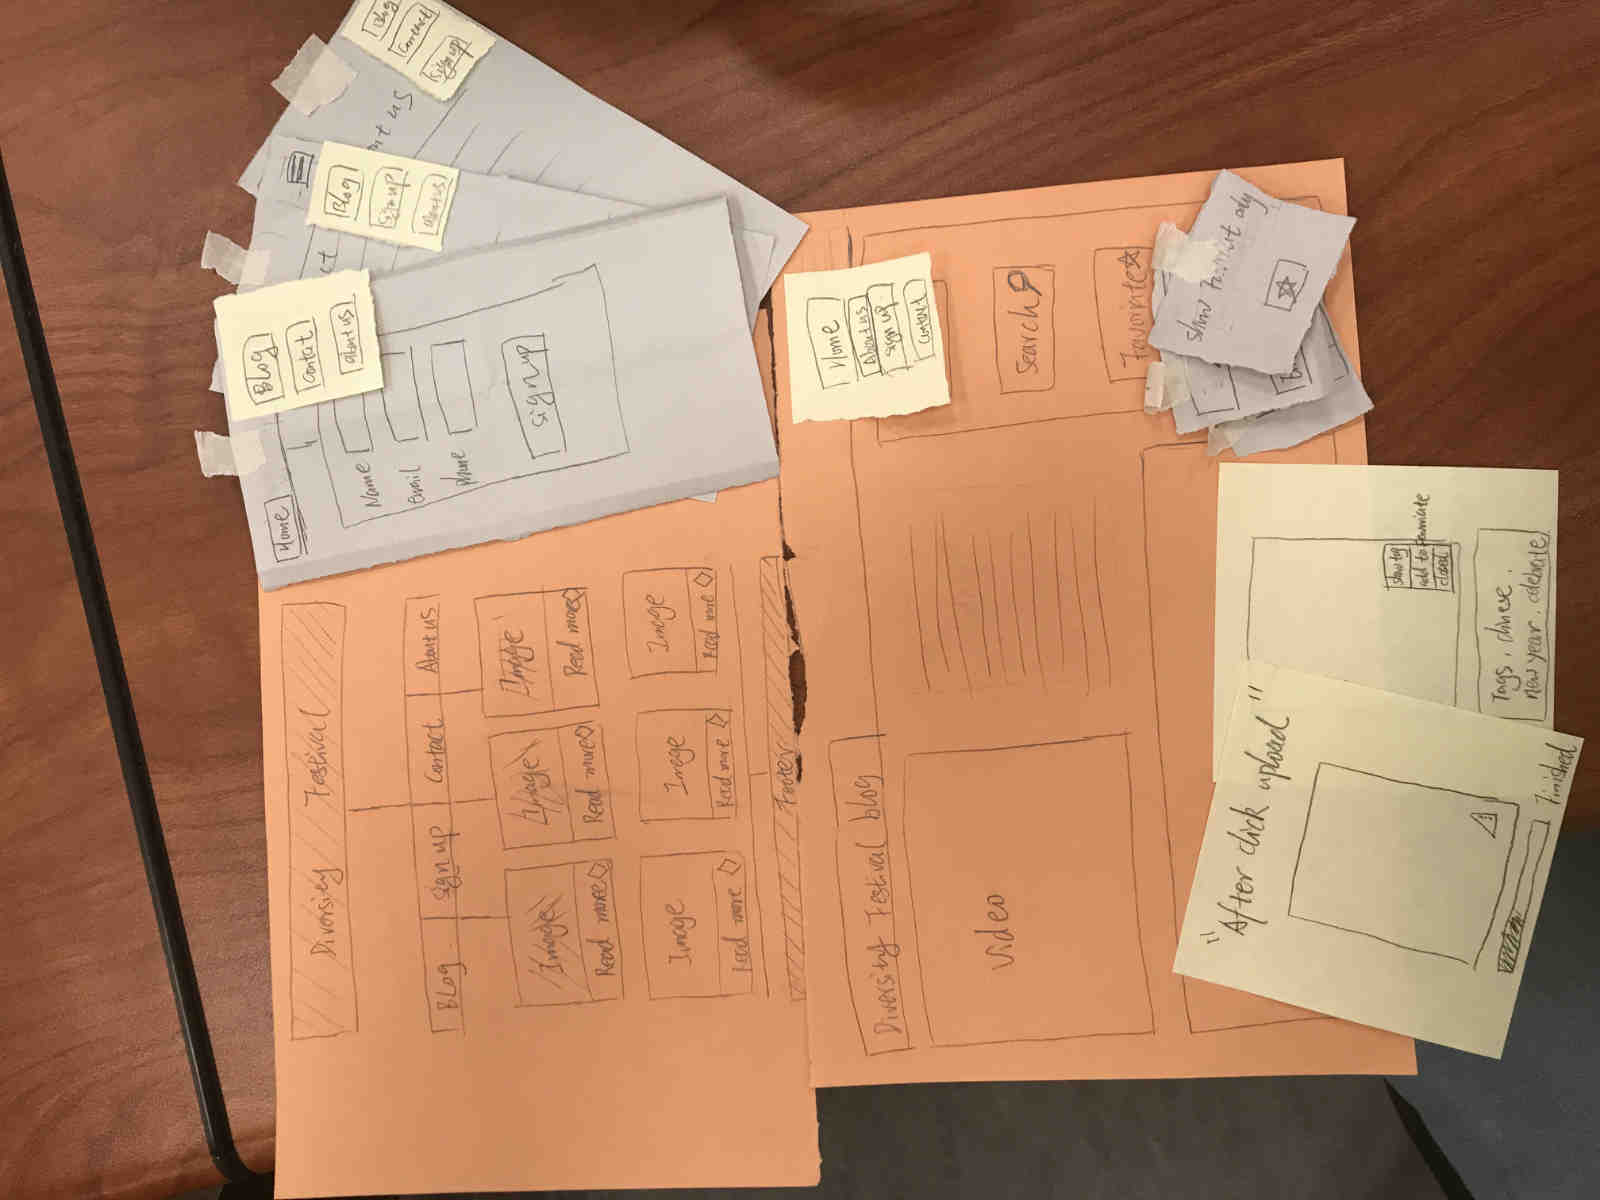 Diversity Festival
Blog
sign up
Contact
About us
Image
Read more
Image
Read more
Image
Read more
Image
Read more
Image
Read more
Image
Read more
Footer
Home
Name
email
Phone
sign up
Blog
Contact
about us
Blog
Sign up
about us
ut us
Blog
Contact
Sign up
Diversity Festival blog
Video
Home
About us
sign up
Contact
Search
Favoriate
show
only
"After click upload"
Finished
show tag
add to favoriate
closed
Tags. chinese.
new year. celebrate